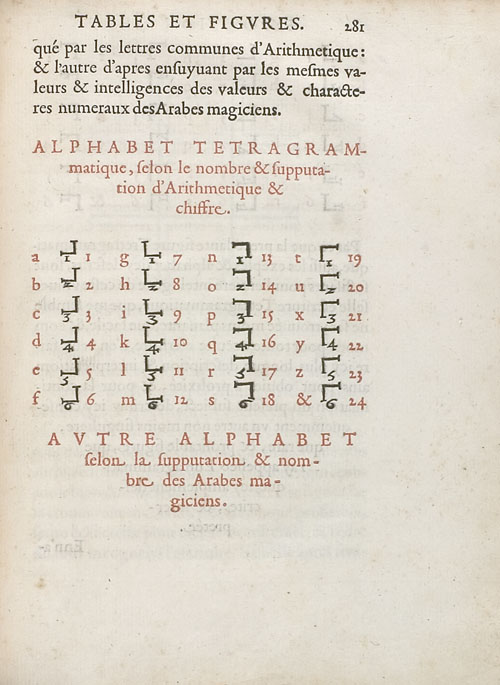 TABLES ET FIGVRES. 281
qué par les lettres communes d'Arithmetique:
& l'autre d'apres ensuyuant par les mesmes va-
leurs & intelligences des valeurs & characte-
res numeraux des Arabes magiciens.
ALPHABET TETRAGRAM-
matique, selon le nombre & supputa-
tion d'Arithmetique &
chiffre.
a 1 1 g 1 7 n 1 13 t 1 19
b 2 2 h 2 8 o 2 14 u 2 20
c 3 3 i 3 9 p 3 15 x 3 21
d 4 4 k 4 10 q 4 16 y 4 22
e 5 5 l 5 11 r 5 17 z 5 23
f 6 6 m 6 12 s 6 18 & 6 24
AVTRE ALPHABET
selon la supputation & nom-
bre des Arabes ma-
giciens.